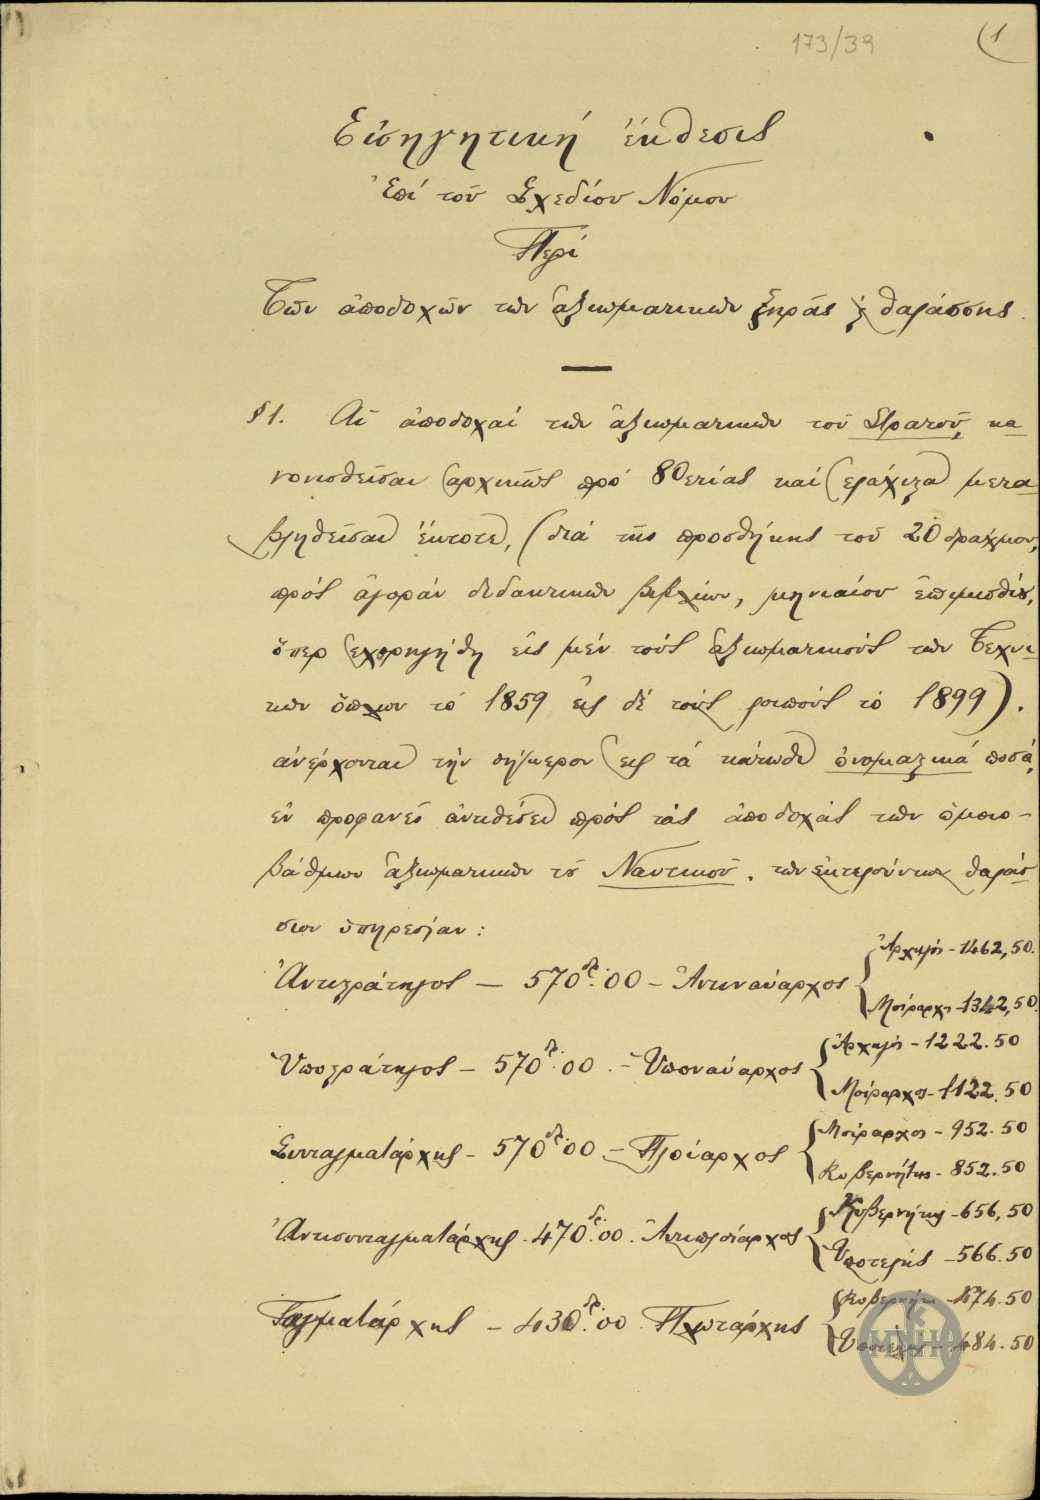 173/39
(1
Εἰσηγητική ἔκθεσις
Ἐπί τοῦ Σχεδίου Νόμου
Περί
Τῶν ἀποδοχῶν τῶν ἀξιωματικῶν ξηρᾶς ϗ θαλάσσης.
§1. Αἱ ἀποδοχαί τῶν ἀξιωματικῶν τοῦ Στρατοῦ, κα-
νονισθεῖσαι ἀρχικῶς πρό 80ετίας καί ἐλάχιστα μετα-
βληθεῖσαι ἔκτοτε, (διά τῆς προσθήκης τοῦ 20 δράχμου,
πρός ἀγοράν διδακτικῶν βιβλίων, μηνιαίου ἐπιμισθίου,
ὅπερ ἐχορηγήθη εἰς μέν τούς ἀξιωματικούς τῶν Τεχνι-
κῶν ὅπλων τό 1859 εἰς δέ τούς λοιπούς τό 1899).
ἀνέρχονται τήν σήμερον εἰς τά κάτωθι ὀνομαστικά ποσά,
ἐν προφανεῖ ἀντιθέσει πρός τάς ἀποδοχάς τῶν ὁμοιο-
βάθμων ἀξιωματικῶν τοῦ Ναυτικοῦ, τῶν ἐκτελούντων θαλάσ-
σιον ὑπηρεσίαν:
Ἀντιστράτηγος — 570 δρ. 00 – Ἀντιναύαρχος { Ἀρχηγός – 1462,50.
Μοίραρχος – 1342,50.
Ὑποστράτηγος – 570 δρ. 00 – Ὑποναύαρχος { Ἀρχηγός – 1222.50
Μοίραρχος – 1122.50
Συνταγματάρχης – 570 δρ. 00 – Πλοίαρχος { Μοίραρχος – 952.50
Κυβερνήτης – 852.50
Ἀντισυνταγματάρχης – 470 δρ. 00 Ἀντιπλοίαρχος { Κυβερνήτης – 656,50
Ὑποτελής – 566.50
Ταγματάρχης – 430 δρ. 00 Πλωτάρχης { Κυβερνήτης – 574.50
Ὑποτελής – 484.50
ΜΝΗΡ